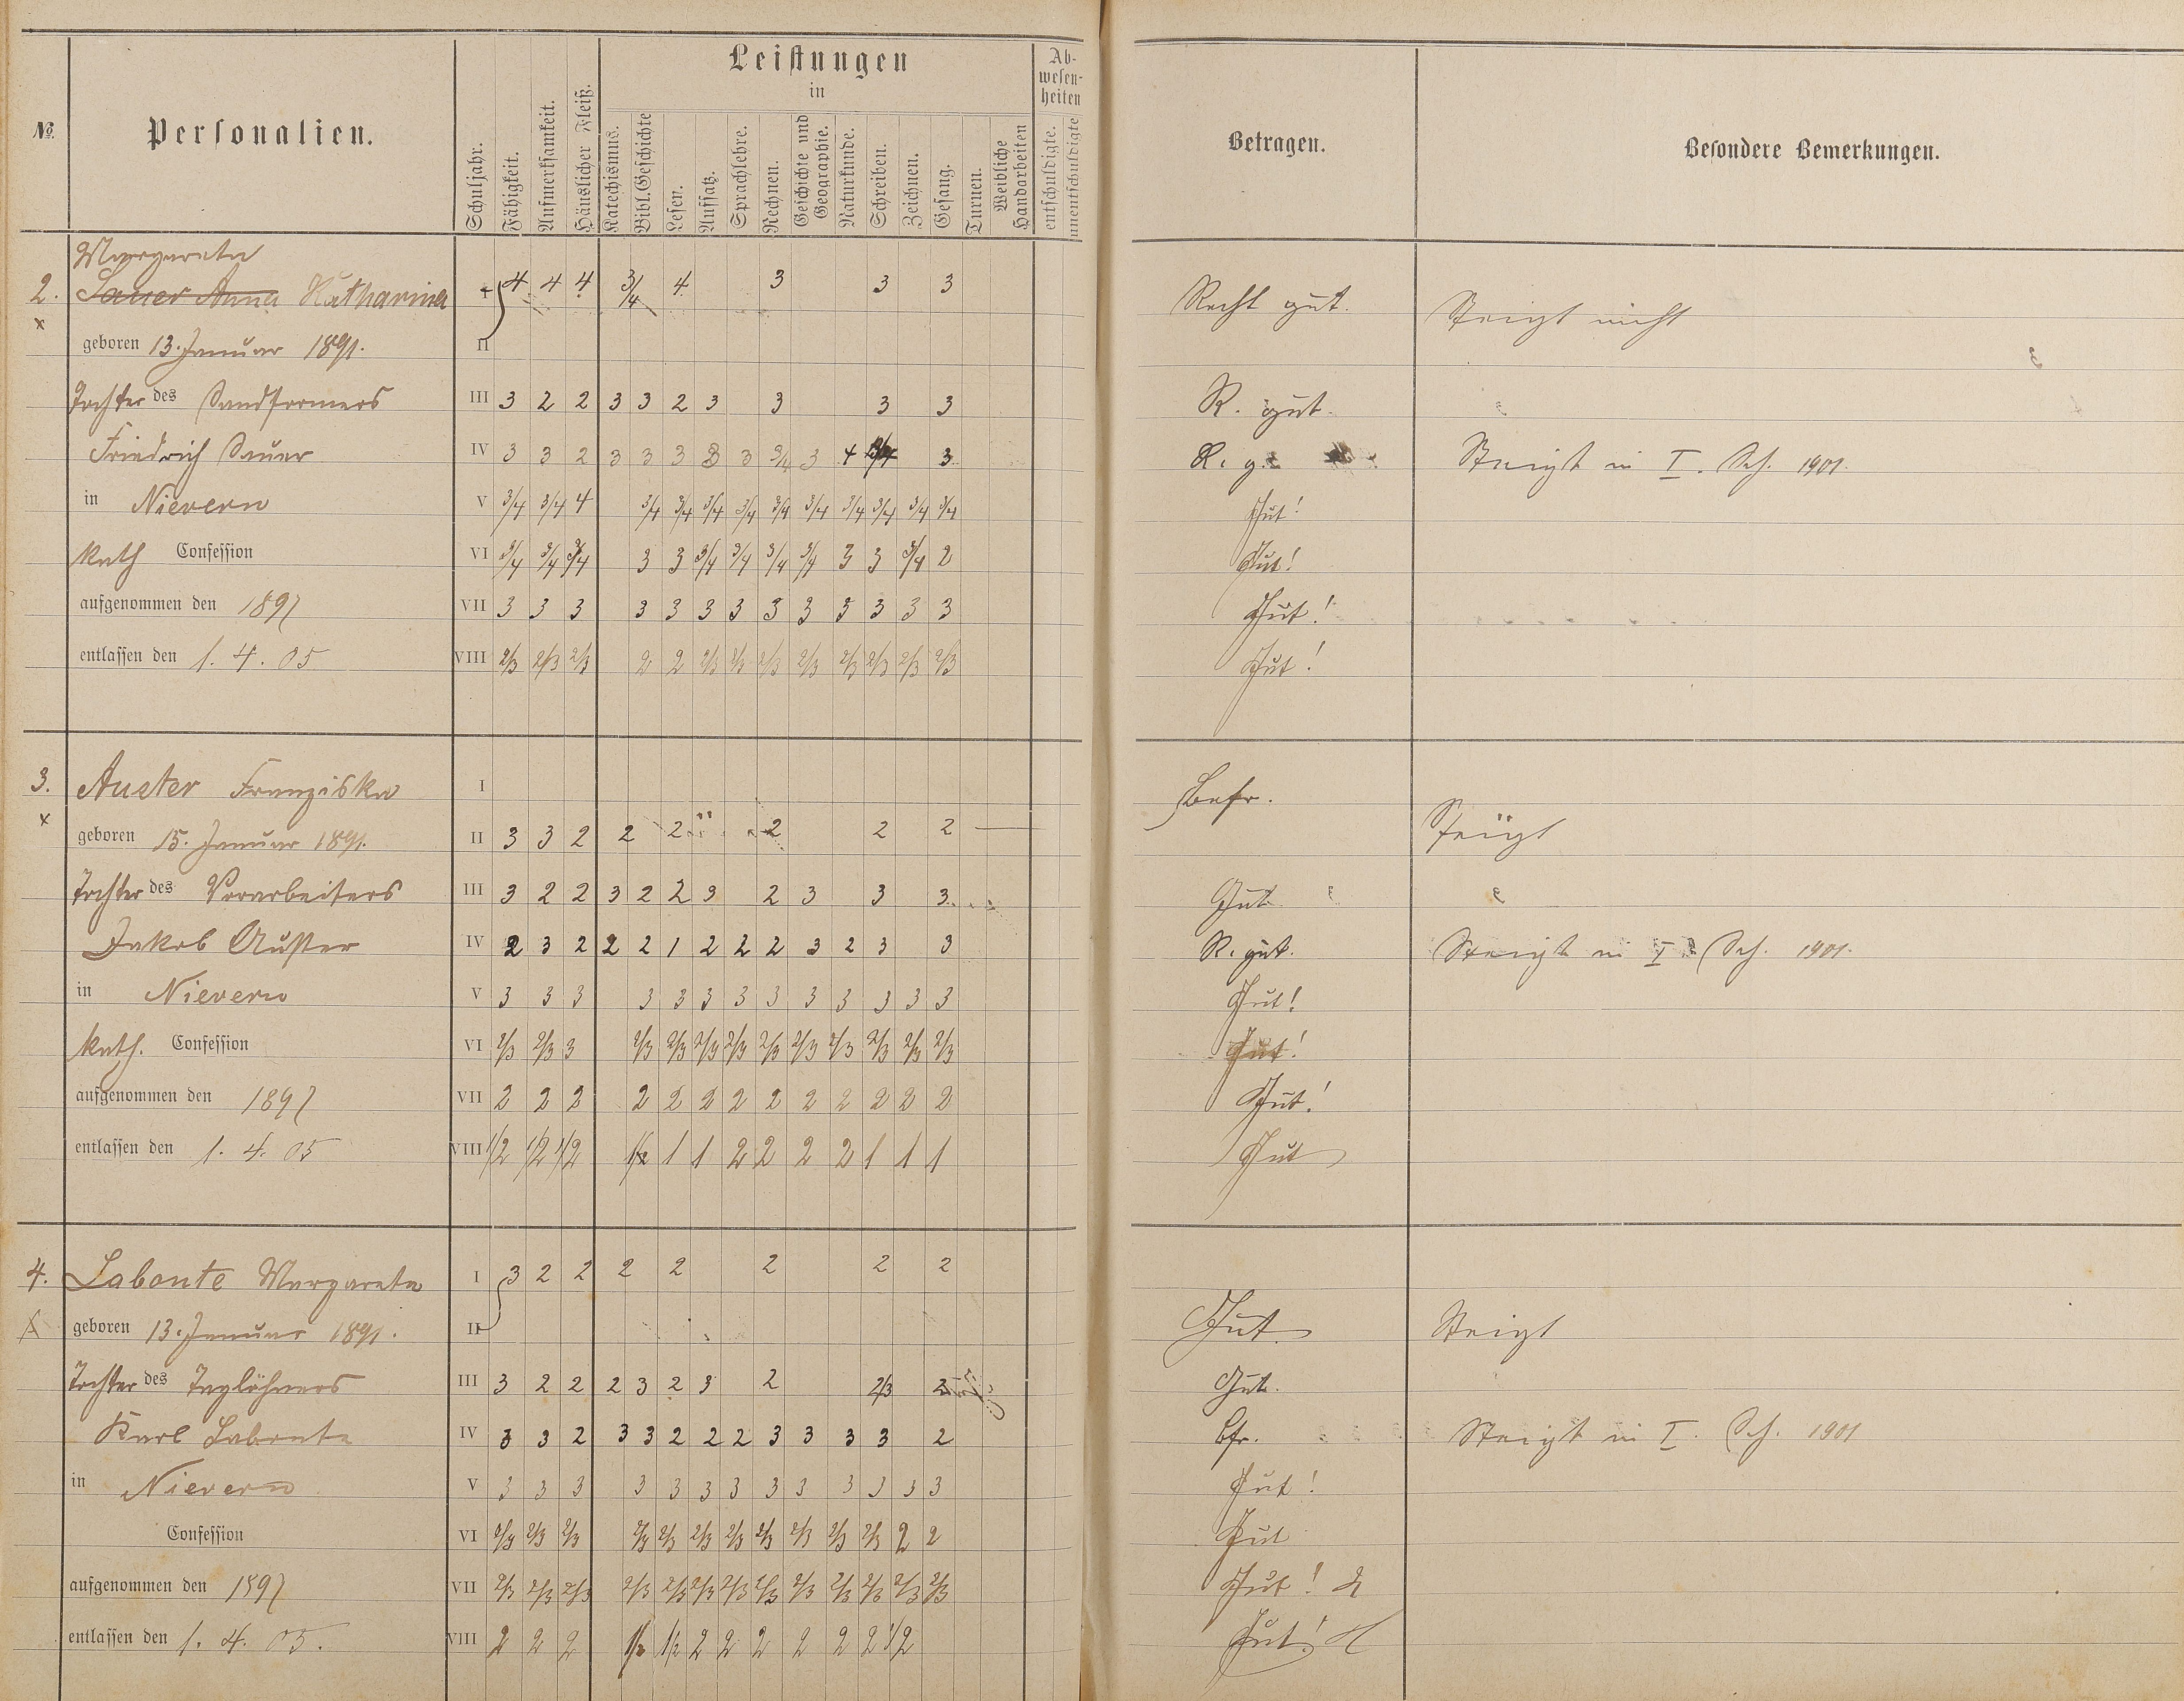 Leistungen
in
Ab-
wesen-
heiten
№
Personalien.
Schuljahr.
Fähigkeit.
Aufmerksamkeit.
Häuslicher Fleiß.
Katechismus.
Bibl. Geschichte
Lesen.
Aufsatz.
Sprachlehre.
Rechnen.
Geschichte und
Geographie.
Naturkunde.
Schreiben.
Zeichnen.
Gesang.
Turnen.
Weibliche
Handarbeiten
entschuldigte.
unentschuldigte
Betragen.
Besondere Bemerkungen.
Margareta
2. Sauer Anna Katharina I 4 4 4 3/4 4 3 3 3 Recht gut. Steigt nicht
x
geboren 13. Januar 1891. II
Tochter des Sandformers III 3 2 2 3 3 2 3 3 3 3 R. gut.
Friedrich Sauer IV 3 3 2 3 3 3 3 3 3/4 3 4 3 R. g. Steigt in I. Sch. 1901.
in Nievern V 3/4 3/4 4 3/4 3/4 3/4 3/4 3/4 3/4 3/4 3/4 3/4 3/4 Gut!
kath Confession VI 3/4 3/4 3/4 3 3 3/4 3/4 3/4 3/4 3 3 3/4 2 Gut!
aufgenommen den 1897 VII 3 3 3 3 3 3 3 3 3 3 3 3 3 Gut!
entlassen den 1. 4. 05 VIII 2/3 2/3 2/3 2 2 2/3 2/3 2/3 2/3 2/3 2/3 2/3 2/3 Gut!
3. Auster Franziska I Befr.
x
geboren 15. Januar 1891. II 3 3 2 2 2 2 2 2 Steigt
Tochter des Vorarbeiters III 3 2 2 3 2 2 3 2 3 3 3 Gut.
Jakob Auster IV 2 3 2 2 2 1 2 2 2 3 2 3 3 R. gut. Steigt in I Sch. 1901.
in Nievern V 3 3 3 3 3 3 3 3 3 3 3 3 3 Gut!
kath. Confession VI 2/3 2/3 3 2/3 2/3 2/3 2/3 2/3 2/3 2/3 2/3 2/3 2/3 Gut!
aufgenommen den 1897 VII 2 2 2 2 2 2 2 2 2 2 2 2 2 Gut!
entlassen den 1. 4. 05 VIII 1/2 1/2 1/2 1/2 1 1 2 2 2 2 1 1 1 Gut
4. Labonte Margareta I 3 2 2 2 2 2 2 2
x
geboren 13. Januar 1891. II Gut. Steigt
Tochter des Taglöhners III 3 2 2 2 3 2 3 2 2/3 2 Gut.
Karl Labonte IV 3 3 2 3 3 2 2 2 3 3 3 3 2 bfr. Steigt in I. Sch. 1901
in Nievern V 3 3 3 3 3 3 3 3 3 3 3 3 3 Gut!
Confession VI 2/3 2/3 2/3 2/3 2/3 2/3 2/3 2/3 2/3 2/3 2/3 2 2 Gut
aufgenommen den 1897 VII 2/3 2/3 2/3 2/3 2/3 2/3 2/3 2/3 2/3 2/3 2/3 2/3 2/3 Gut!
entlassen den 1. 4. 05. VIII 2 2 2 1/2 1/2 2 2 2 2 2 2 1/2 Gut!